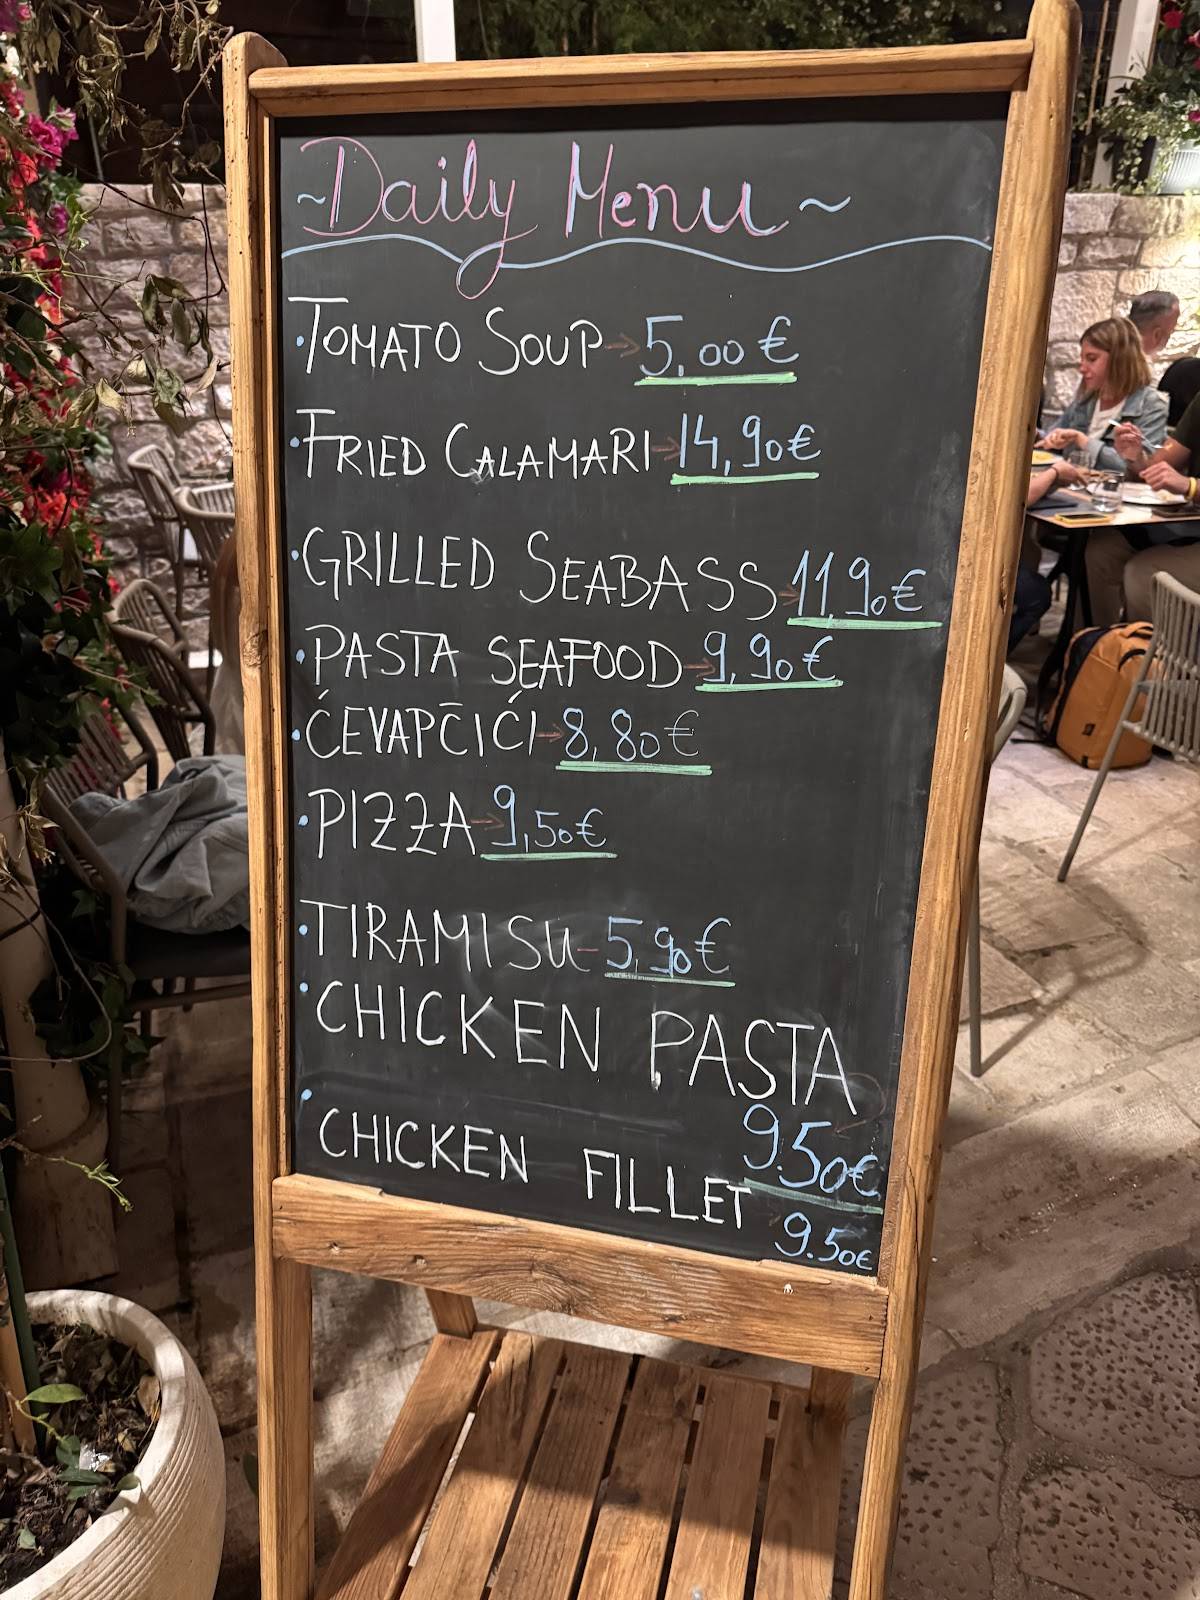 ~Daily Menu~
• TOMATO SOUP → 5,00 €
• FRIED CALAMARI → 14,90€
• GRILLED SEABASS → 11,90€
• PASTA SEAFOOD → 9,90€
• ĆEVAPČIĆI → 8,80€
• PIZZA → 9,50€
• TIRAMISU - 5,90€
• CHICKEN PASTA
9.50€
• CHICKEN FILLET
9.50€